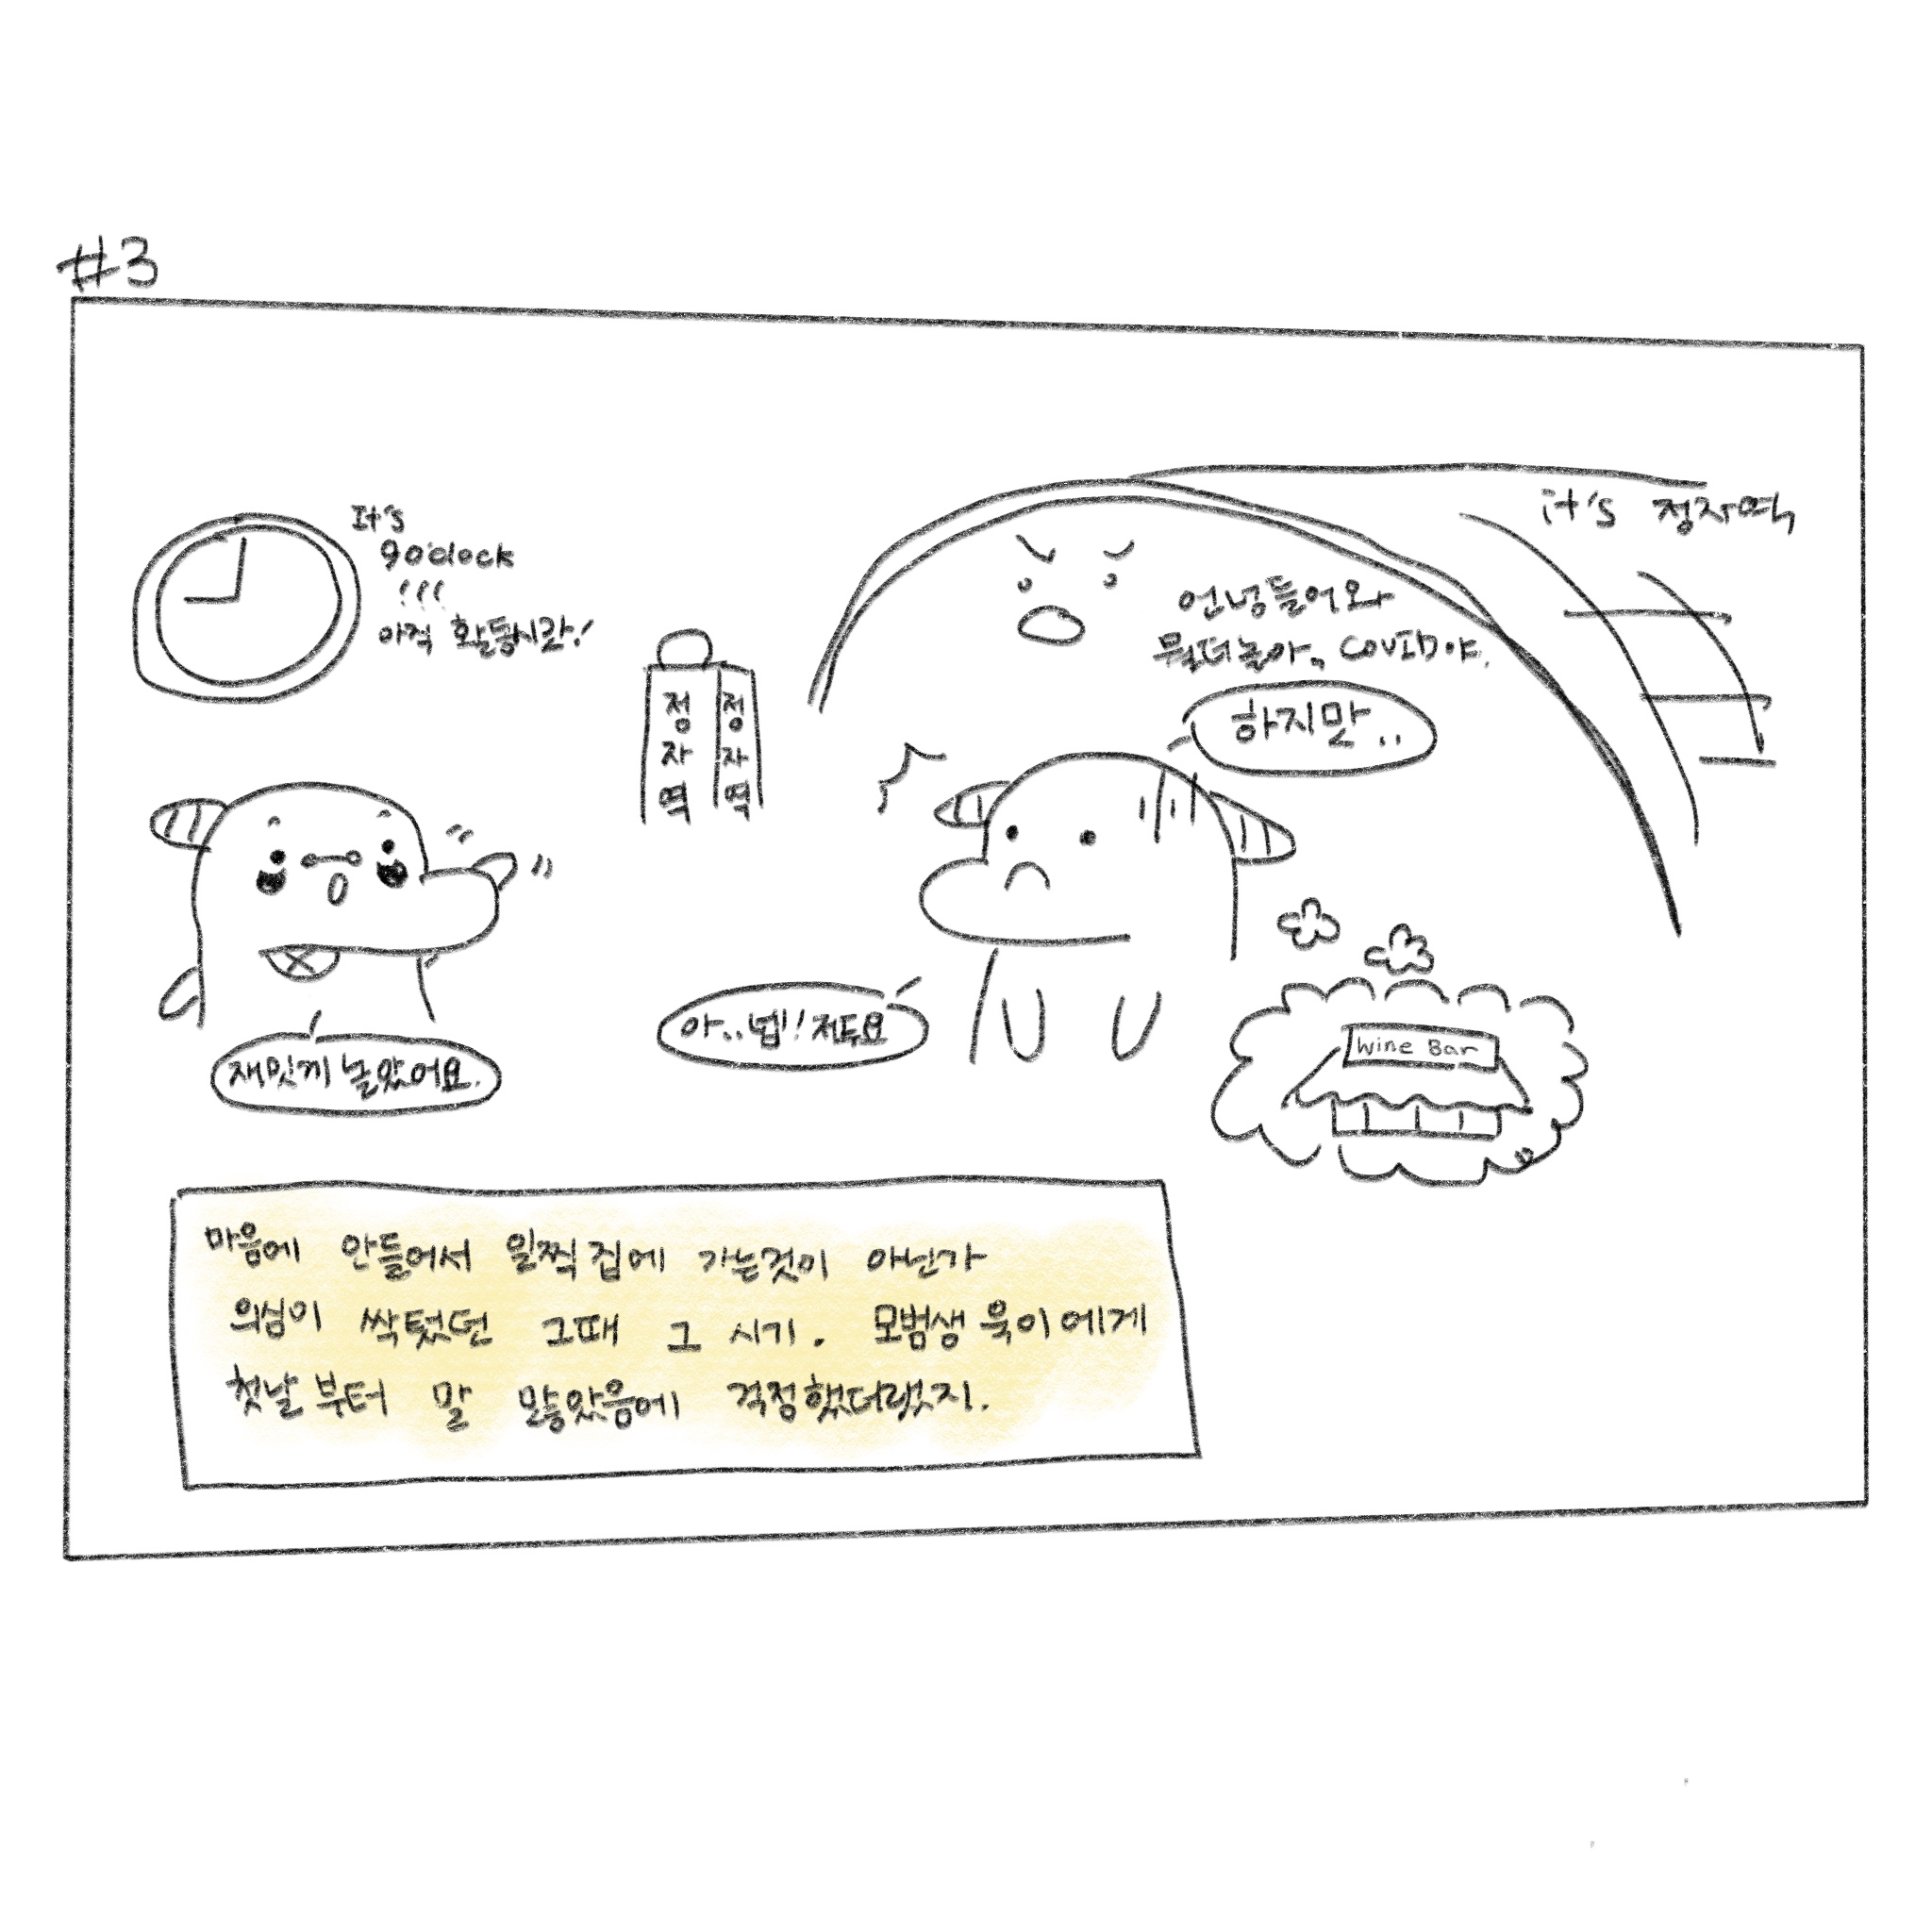 #3
It's
9o'clock
!!!
아직 활동시간!
it's 정자역
정자역
정자역
언넝들어와
뭘더놀아, COVID야.
하지말..
재밌게 놀았어요.
아..넵!! 저두요
Wine Bar
마음에 안들어서 일찍 집에 가는것이 아닌가
의심이 싹텄던 그때 그 시기. 모범생 욱이에게
첫날부터 말 많았음에 걱정했더랬지.